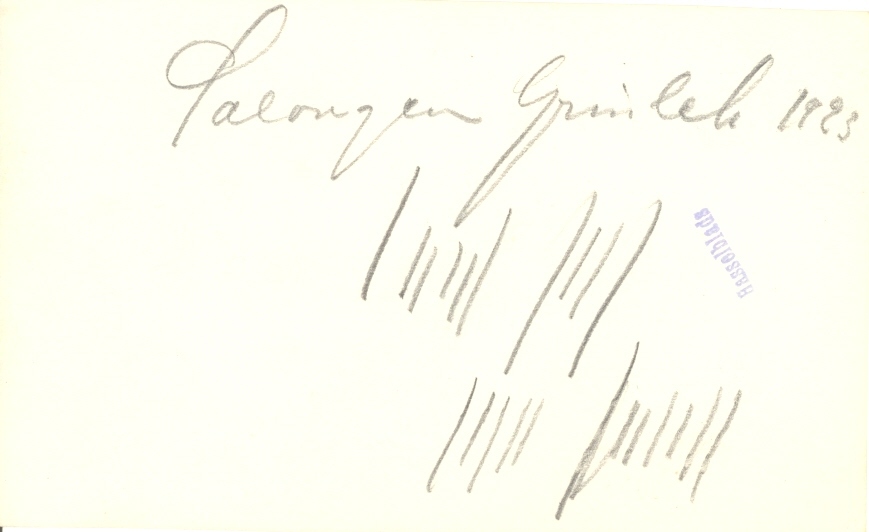 Salongen Grinleh 1923
Hasselblads